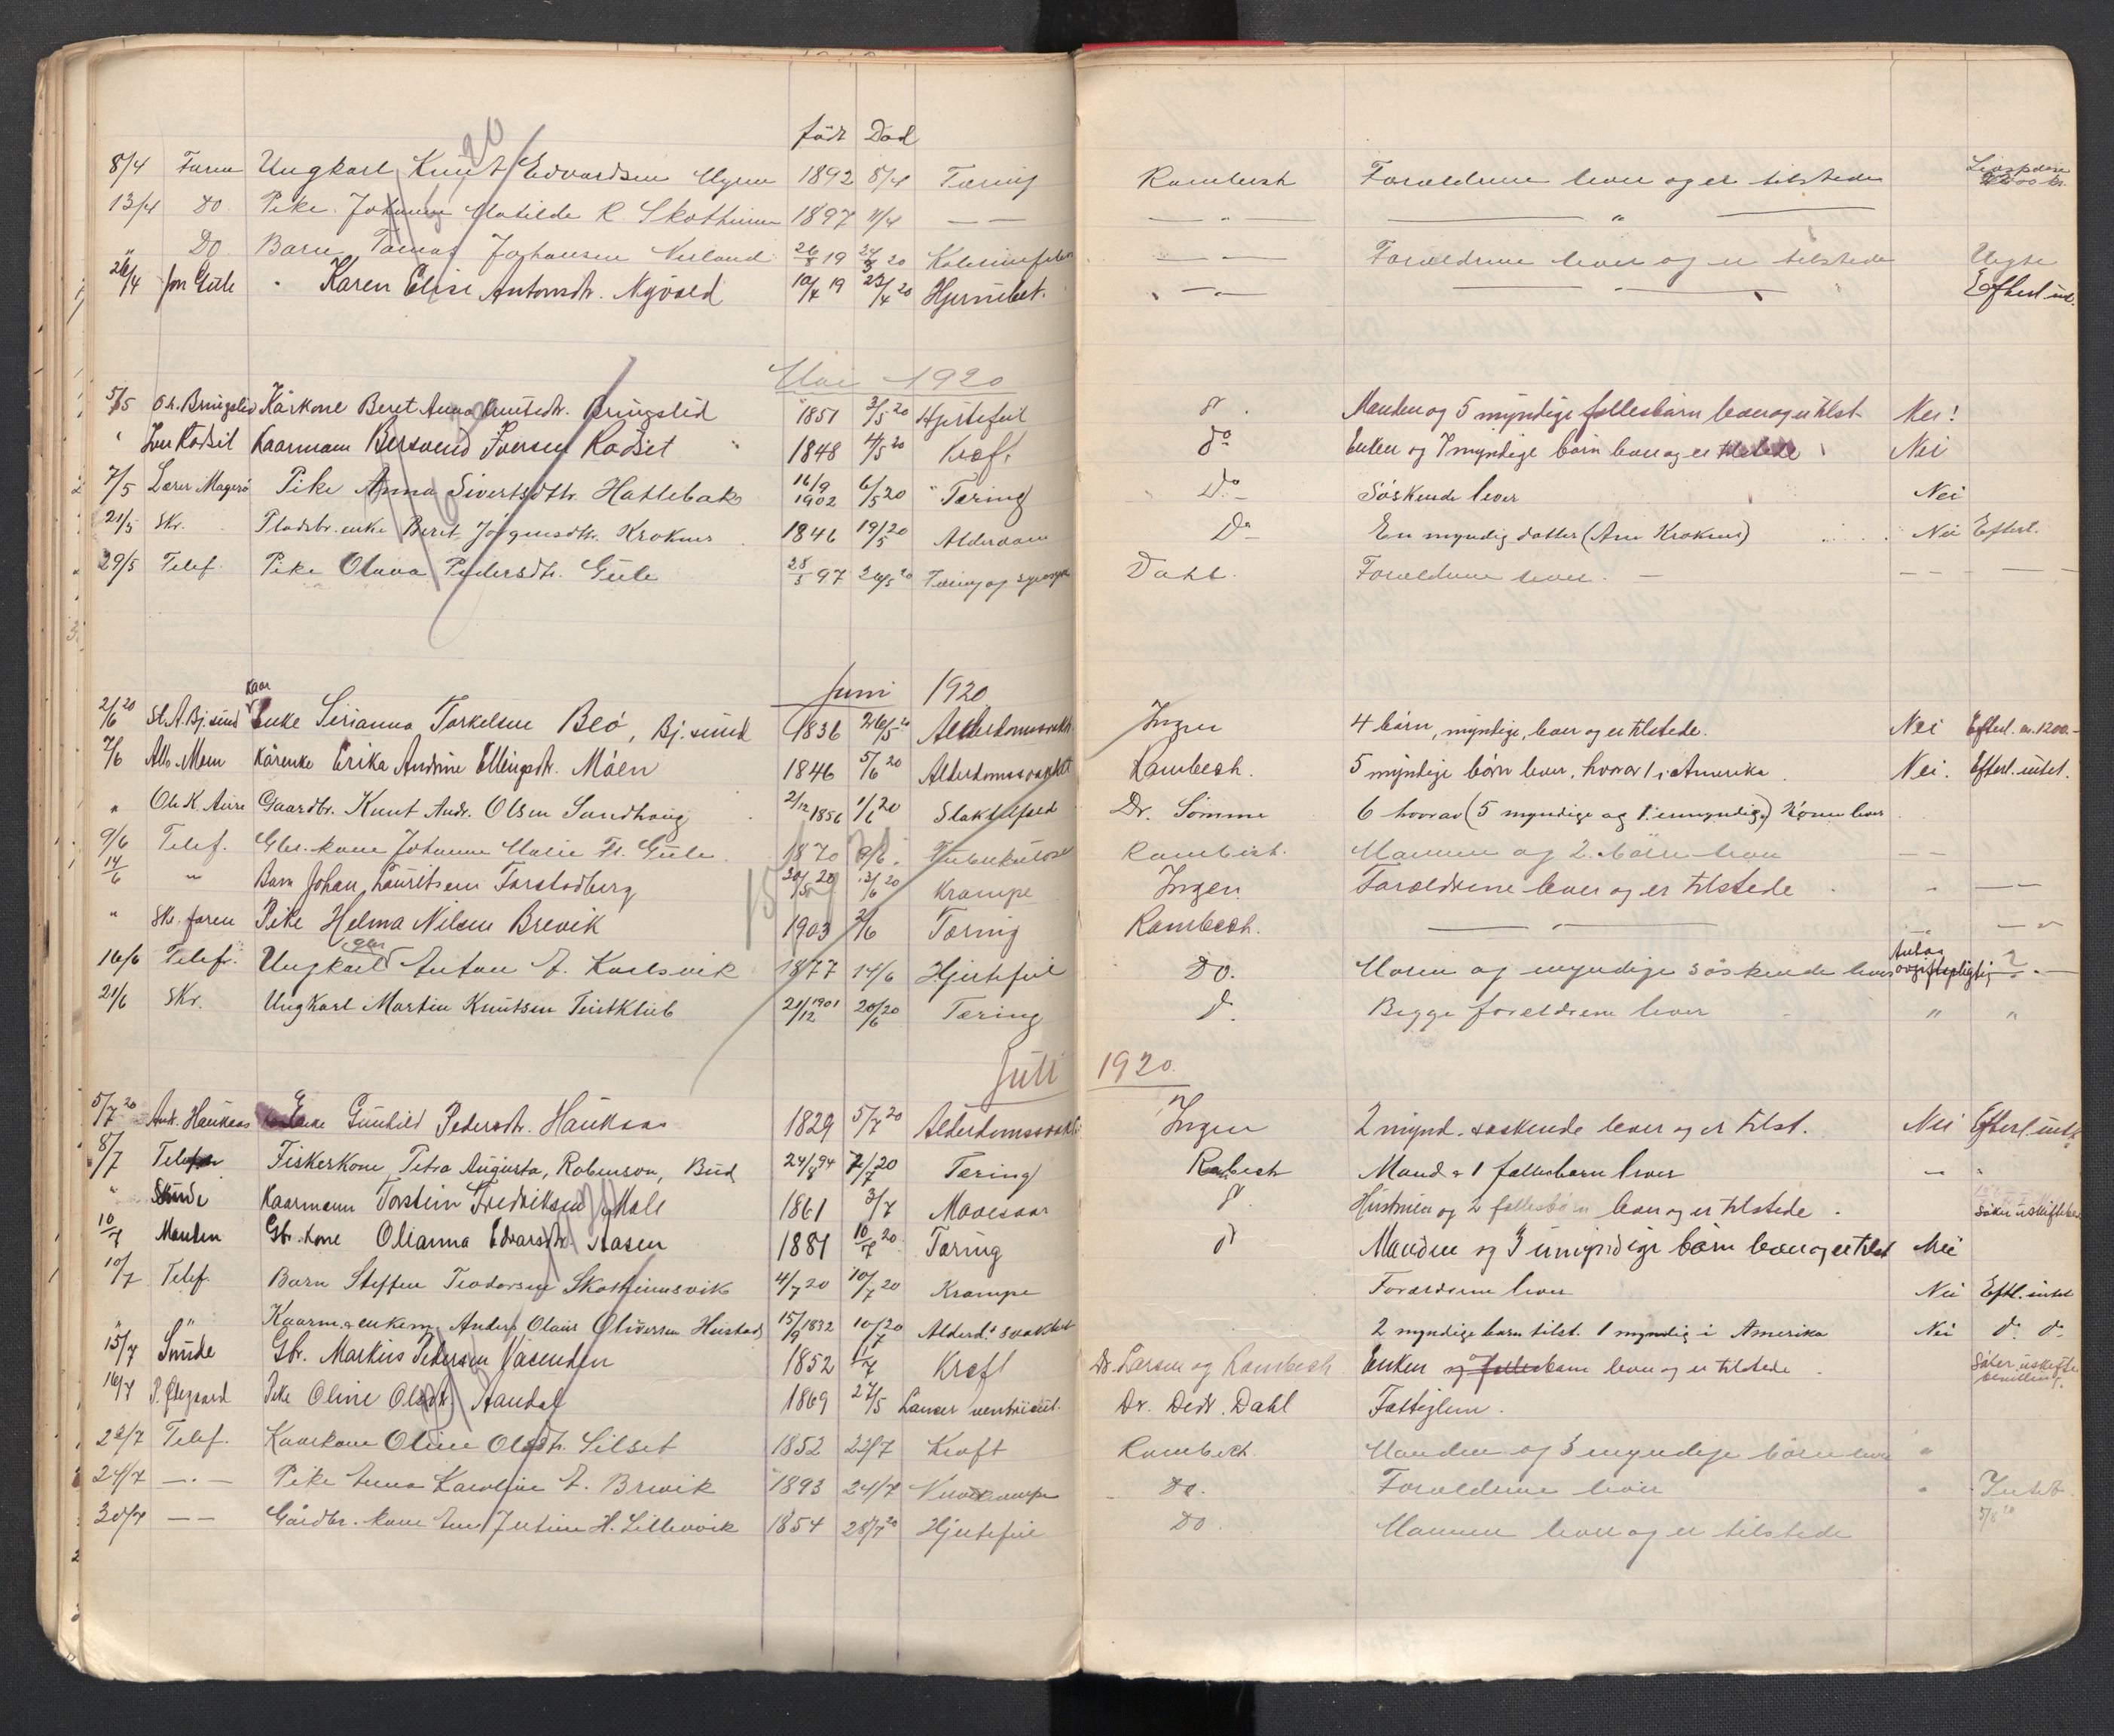 født Død
8/4 Faren Ungkarl Knut Edvardsen Myren 1892 8/4 Tæring Rambech Forældrene lever og er tilstede
13/4 Do Pike Johanna Matilde R Skotheim 1897 11/4 — — — " — — " —
" Do Barn Tomas Johansen Nerland 26/8 19 20 — — Forældrene lever og er tilstede
26/4 Jon Gule " Karen Elise Antonsdtr. Nyvold 10/4 19 23/4 20 Hjernebet. " — " — — " — Efterl. int.
Mai 1920
5/5 O.K. Bringslid Kårkone Beret Anna Knutsdtr. Bringslid 1851 3/5 20 Hjertefeil do. Manden og 5 myndige fellesbarn lever og er tilst. Nei!
" Iver Rødset Kaarmann Bersvend Iversen Rødset 1848 4/5 20 Kræft do Enken og 7 myndige børn lever og er tilstede Nei
7/5 Lærer Magerø Pike Anna Sivertsdtr. Hatlebak 16/9 1902 6/5 20 Tæring Do Søskende lever Nei
21/5 Skr. Pladsbr. enke Beret Jørgensdtr. Kroknes 1846 19/5 20 Alderdom Do En myndig datter (Ane Kroknes) Nei Efterl.
29/5 Telef. Pike Olava Pedersdtr. Gule 28/5 97 26/5 20 Tæring og Dahl. Forældrene lever. — — — — —
Juni 1920
2/6 20 St. A. Bj.sund Kaar Enke Serianna Torkelsen Beø, Bj.sund 1836 26/5 20 Alderdomssvakh. Ingen 4 børn, myndige, lever og er tilstede. Nei Efterl. m. 1200.-
7/6 Alb. Moen Kårenke Erika Andrine Ellingsdtr. Moen 1846 5/6 20 Alderdomssvakhet Rambech. 5 myndige børn lever, hvorav 1 i Amerika. Nei. Efterl. intet.
" Ole K. Aure Gaardbr. Knut Andr. Olsen Sandhaug 2/12 1856 1/6 20 Slaktilfeld Dr. Sømme 6 hvorav (5 myndige og 1 umyndig) Konen lever
9/6 Telef. Gbr. kone Johanne Marie Fr. Gule 1870 9/6 " Tuberkulose Rambech. Mannen og 2 børn lever — —
14/6 " Barn Johan Lauritsen Farstadberg 30/5 20 12/6 20 Krampe Ingen Forældrene lever og er tilstede " — —
" Skr. faren Pike Helma Nilsen Brevik 1903 /6 Tæring Rambech. — " — — " —
16/6 Telef. Ungkarl gbr Anton A. Karlsvik 1877 14/6 Hjertefeil Do. Moren og myndige søskende lever Antag avgiftspligtig ? —
21/6 Skr. Ungkarl Martin Knutsen Tustklub 21/12 1901 20/6 20 Tæring do. Begge forældrene lever " "
Juli 1920
5/7 20 And. Haukaas Enke Gunhild Pedersdtr. Haukaas 1829 5/7 20 Alderdomssvakh. Ingen 2 mynd. søskende lever og er tilst. Nei Efterl. intet
8/7 Telefon Fiskerkone, Petra Augusta, Robinson, Bud 24/4 94 7/7 20 Tæring Rambech Mand & 1 fællesbarn lever — "
" Sunde Kaarmann Torstein Fredriksen Male 1861 3/7 Mavesaar do. Hustruen og 2 fællesbarn lever og er tilstede. Søker uskiftebev.
10/7 Manden Gbr. kone Olianna Edvarsdtr. Aasen 1881 10/7 20 Tæring do Manden og 3 umyndige børn lever og er tilst Nei
10/7 Telef. Barn Steffen Teodorsen Skotheimsvik 4/7 20 10/7 20 Krampe Forældrene lever Nei Eftl. intet
" " Kaarm. & enkem. Anders Olaus Oliversen Hustad 15/9 1832 10/7 20 Alderd.s svakhet 2 myndige barn tilst. 1 myndig i Amerika Nei do. do.
15/7 Sunde Gbr. Markus Pedersen Vasenden 1852 /7 Kræft Dr. Larsen og Rambech Enken og fællesbarn lever og er tilstede. Søker uskifte bevilling.
16/7 P. Øtegaard Pike Oline Olsdtr. Aandal 1869 27/5 Cancer ventricul. Dr. Dedr. Dahl Fattiglem.
22/7 Telef. Kaarkone Oline Olsdtr. Silset 1852 22/7 Kræft Rambech. Manden og 3 myndige børn lever "
24/7 — " — Pike Anna Karoline A. Brevik 1893 24/7 Do. Forældrene lever " Intet
30/7 — — Gårdbr. kone Ane Justine H. Lillevik 1854 28/7 20 Hjertefeil Do Mannen lever og er tilstede 5/8 20